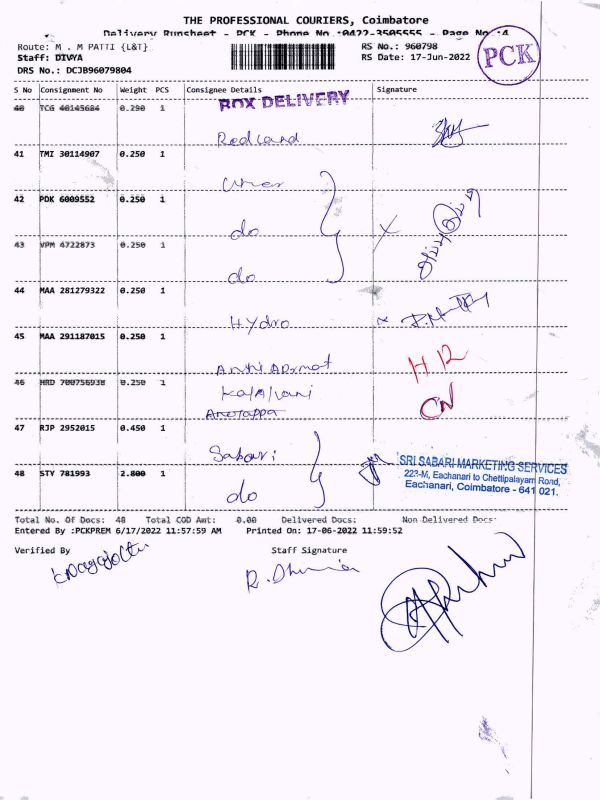 THE PROFESSIONAL COURIERS, Coimbatore
Delivery Runsheet - PCK - Phone No :0422-3505555 - Page No :4
Route: M . M PATTI {L&T} RS No.: 960798
Staff: DIVYA RS Date: 17-Jun-2022
DRS No.: DCJB96079804
PCK
S No Consignment No Weight PCS Consignee Details Signature
BOX DELIVERY
40 TCG 40145684 0.290 1 Redland
41 TMI 30114907 0.250 1
42 PDK 6009552 0.250 1 do
43 VPM 4722873 0.250 1 do
44 MAA 281279322 0.250 1 Hydro
45 MAA 291187015 0.250 1
H 12
46 HRD 700756938 0.250 1 Kalaivani
CN
47 RJP 2952015 0.450 1 Sabari
48 STY 781993 2.800 1 do
SRI SABARI MARKETING SERVICES
223-M, Eachanari to Chettipalayam Road,
Eachanari, Coimbatore - 641 021.
Total No. Of Docs: 48 Total COD Amt: 0.00 Delivered Docs: Non Delivered Docs:
Entered By :PCKPREM 6/17/2022 11:57:59 AM Printed On: 17-06-2022 11:59:52
Verified By Staff Signature